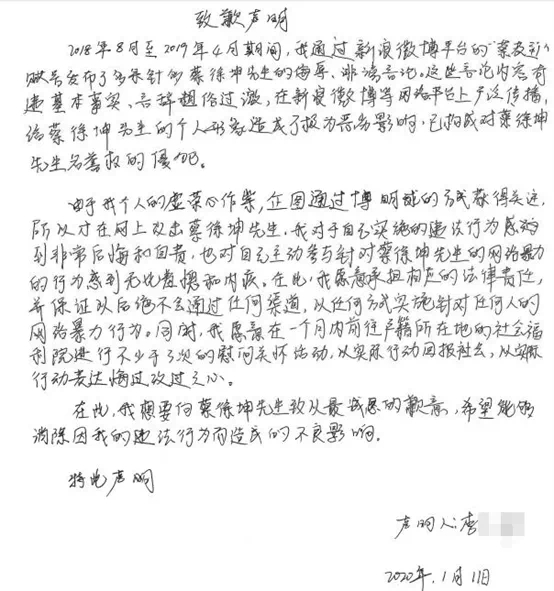 致歉声明
2018年8月至2019年4月期间,我通过新浪微博平台的"蔡及彭"
账号发布了多条针对蔡徐坤先生的侮辱、诽谤言论。这些言论内容有
违基本事实、言辞超俗过激,在新浪微博等网络平台上广泛传播,
给蔡徐坤先生的个人形象造成了极为恶劣影响,已构成对蔡徐坤
先生名誉权的侵犯。
由于我个人的虚荣心作祟,企图通过博明球的方式获得关注,
所以才在网上攻击蔡徐坤先生,我对于自己实施的违法行为感
到非常后悔和自责,也对自己主动参与针对蔡徐坤先生的网络暴力
的行为感到无比羞愧和内疚。在此,我愿意承担相应的法律责任,
并保证以后绝不会通过任何渠道,以任何方式实施针对任何人的
网络暴力行为。同时,我愿意在一个月内前往户籍所在地的社会福
利院进行不少于3次的慰问关怀活动,以实际行动回报社会,以实际
行动表达悔过改过之心。
在此,我想要向蔡徐坤先生致以最诚恳的歉意,希望能够
消除因我的违法行为而造成的不良影响。
特此声明
声明人:李
2020年.1月11日